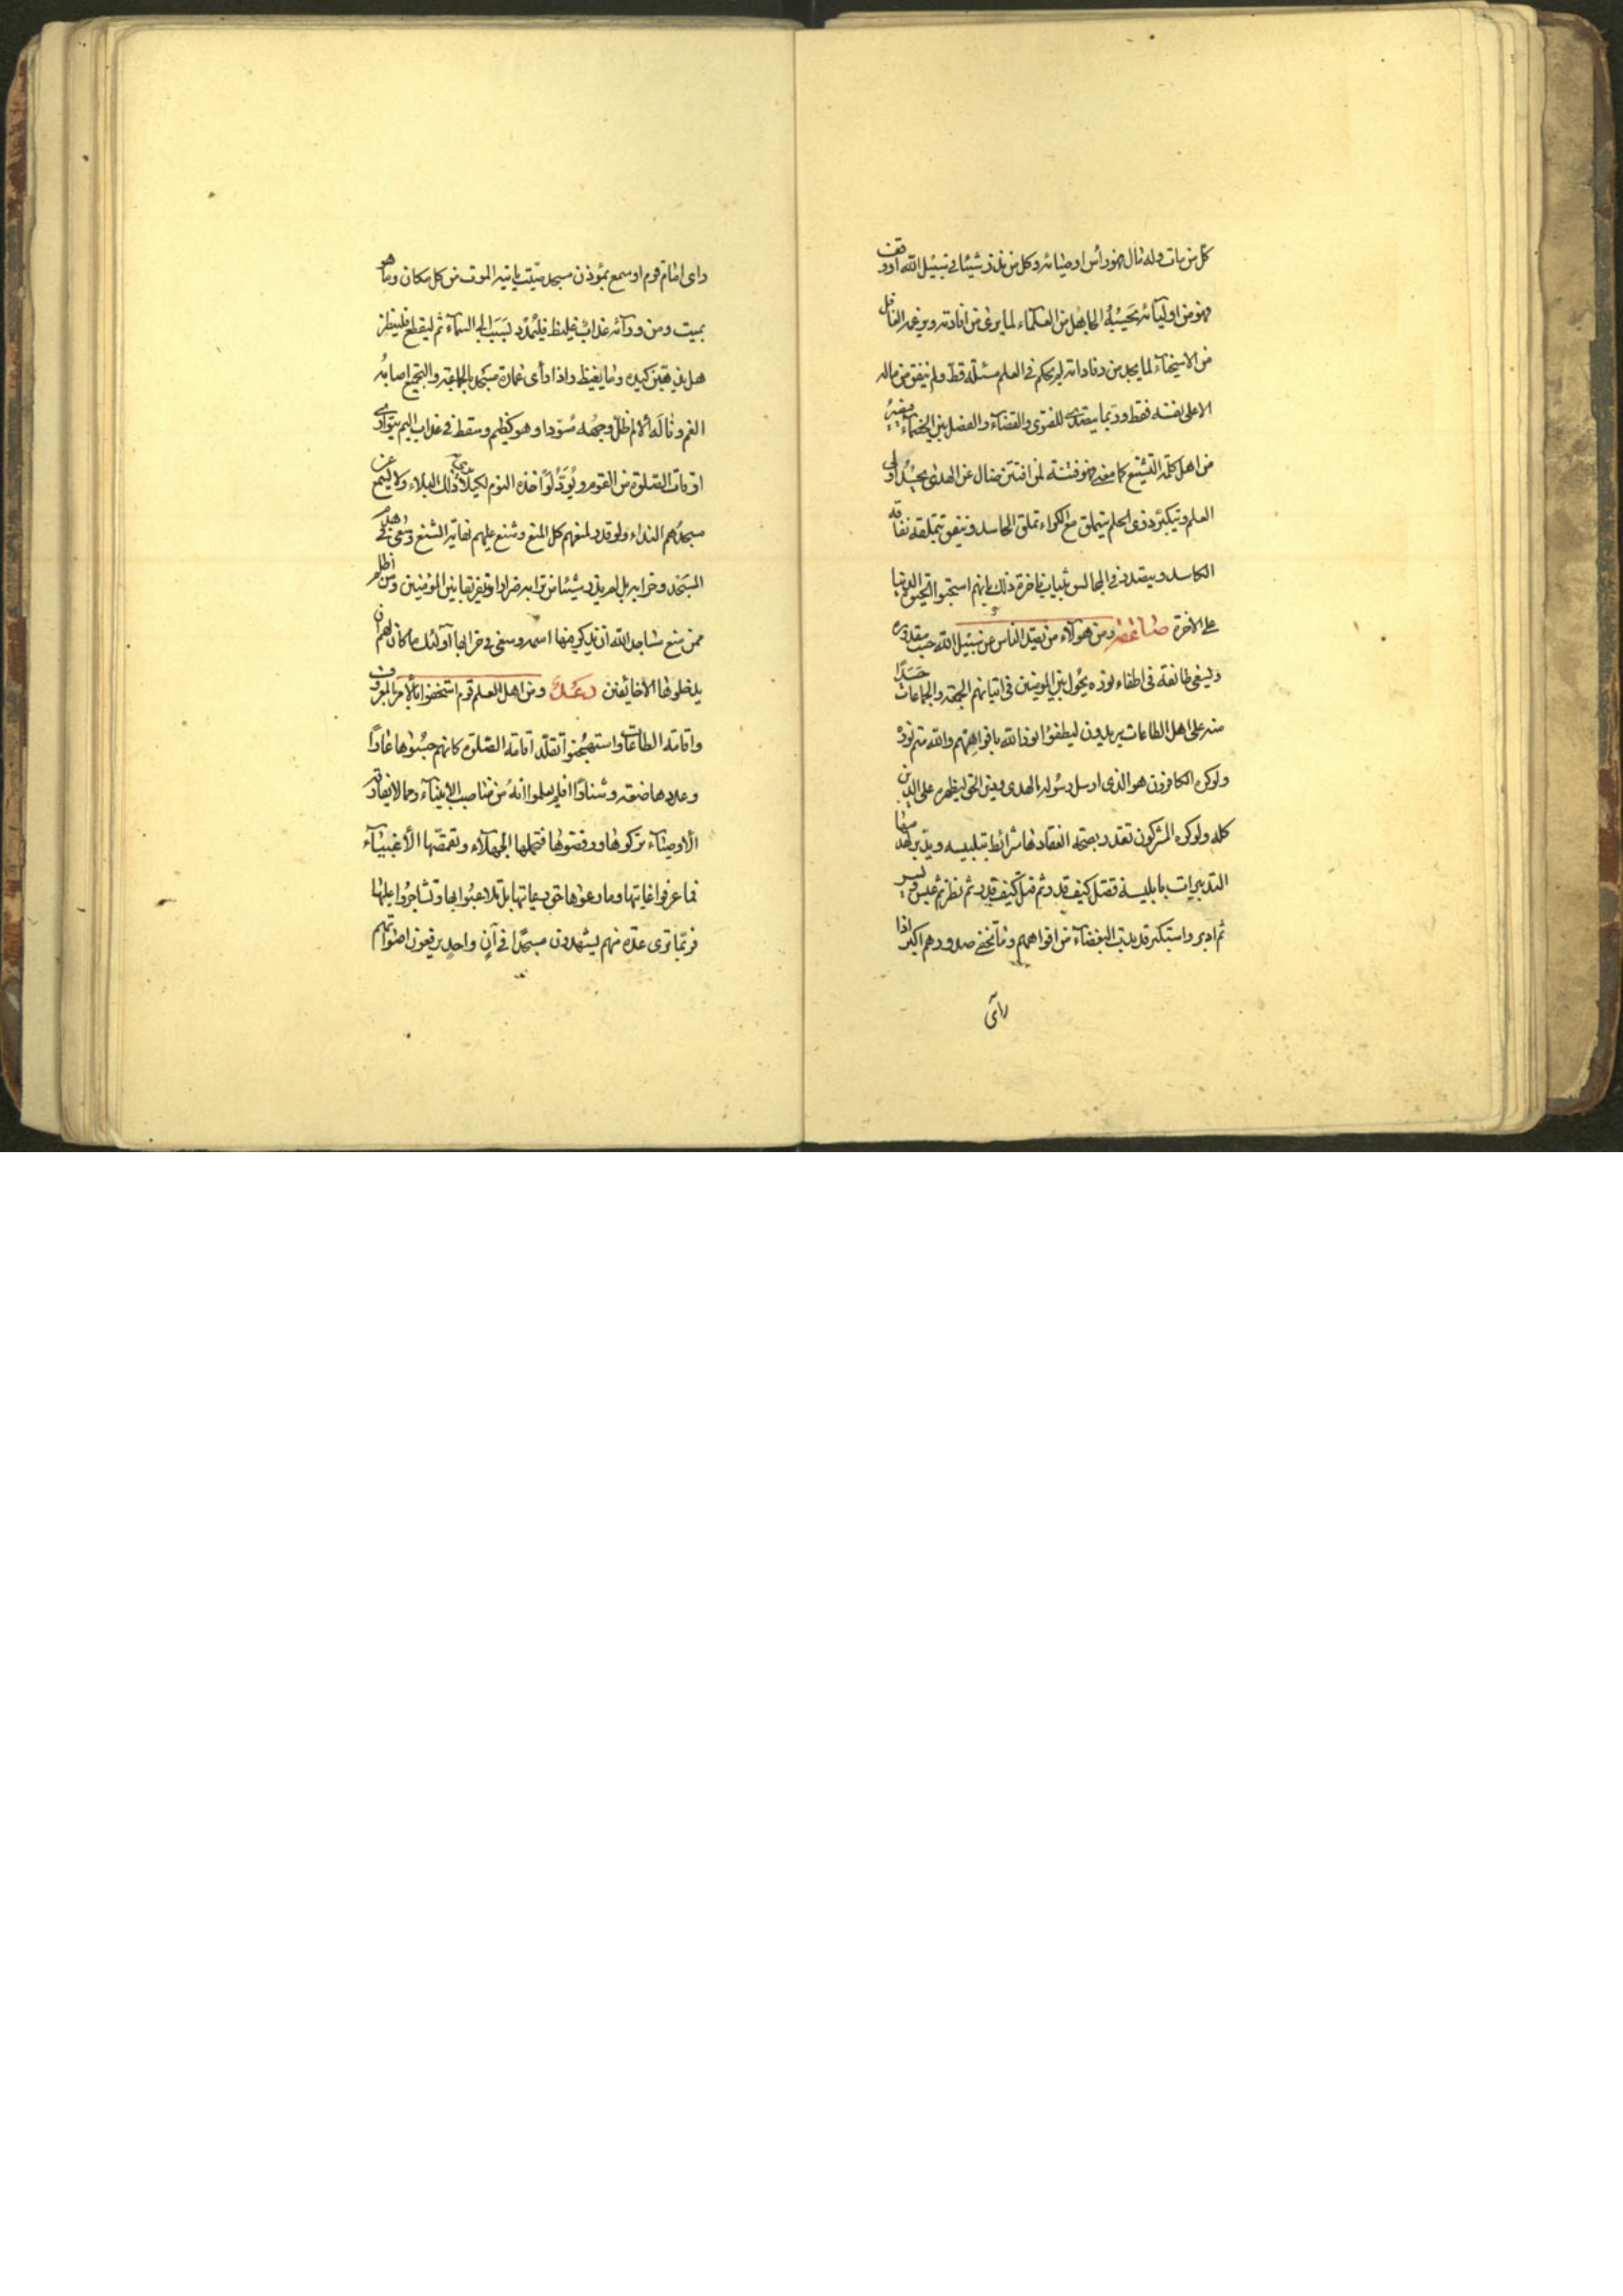 كل من مات وله مال فهو رأس اوصيائه وكل من نذر شيئا في سبيل الله او وقف
فهو من اوليائه يحسبه الجاهل من العلماء لما يرى من افادته ويزعمه الغافل
من الاسخياء لما يجد من وفاداته لم يحكم في العلم مسئلة قط ولم ينفق من ماله
الا على نفسه فقط وربما يتصدى للفتوى والقضاء والفصل بين الخصماء
من اهل كلمة التشيع كما مضى فهو فتنة لمن افتتن ضال عن الهدى يحسد اولى
العلم ويتكبر ذوى الحلم يتملق مع تملق الحاسد وينفق بتملقه نفاقه
الكاسد ويتصدر في المجالس بثياب فاخرة ذلك بانهم استحبوا الحيوة الدنيا
على الاخرة ومن هؤلاء من يصد الناس عن سبيل الله حسب مقدوره
ويسعى طائفة في اطفاء نوره يحول بين المؤمنين في اتيانهم الجمعة والجماعات حسدا
منه على اهل الطاعات يريدون ليطفؤا نور الله بافواههم والله متم نوره
ولو كره الكافرون هو الذي ارسل رسوله بالهدى ودين الحق ليظهره على الدين
كله ولو كره المشركون انعقادها شرائط بتلبيسه ويدبر
التدبيرات بابليسه فقتل كيف قدر ثم قتل كيف قدر ثم نظر ثم عبس وبسر
ثم ادبر واستكبر قد بدت البغضاء من افواههم وما تخفى صدورهم اكبر اذا
رأى
راى امام قوم او سمع بمؤذن مسجد ميت ياتيه الموت من كل مكان وما هو
بميت ومن ورائه عذاب غليظ فليمدد بسبب الى السماء ثم ليقطع فلينظر
هل يذهبن كيده ما يغيظ واذا رأى عمارة مسجد بالجماعة والتجميع اصابه
الغم وناله الالم ظل وجهه مسودا وهو كظيم وسقط في عذاب اليم يتوارى
اوقات الصلوة من القوم ويود لو اخذه النوم لكيلا يرى ذلك البلاء ولا يسمع عن
مسجدهم النداء ولو قدر لمنعهم كل المنع وشنع عليهم نهاية الشنع وسعى في هدم
المسجد وخرابه بل لم يذر شيئا من ترابه ضرارا وتفريقا بين المؤمنين ومن اظلم
ممن منع مساجد الله ان يذكر فيها اسمه وسعى في خرابها اولئك ما كان لهم ان
يدخلوها الا خائفين ومن اهل العلم قوم استخفوا بالامر بالمعروف
واقامة الطاعات واستهجنوا تقلد اقامة الصلوة كانهم حسبوها عارا
وعدوها ضعة وشنارا افلم يعلموا انه من مناصب الانبياء ومما لا يفارق
الاوصياء تركوها ورفضوها فتحملها الجهلاء وتقمصها الاغبياء
فما عرفوا غايتها وما رعوها حق رعايتها بل تلاعبوا بها وتشاجروا عليها
فربما ترى عدة منهم يشهدون مسجدا في آن واحد يرفعون اصواتهم